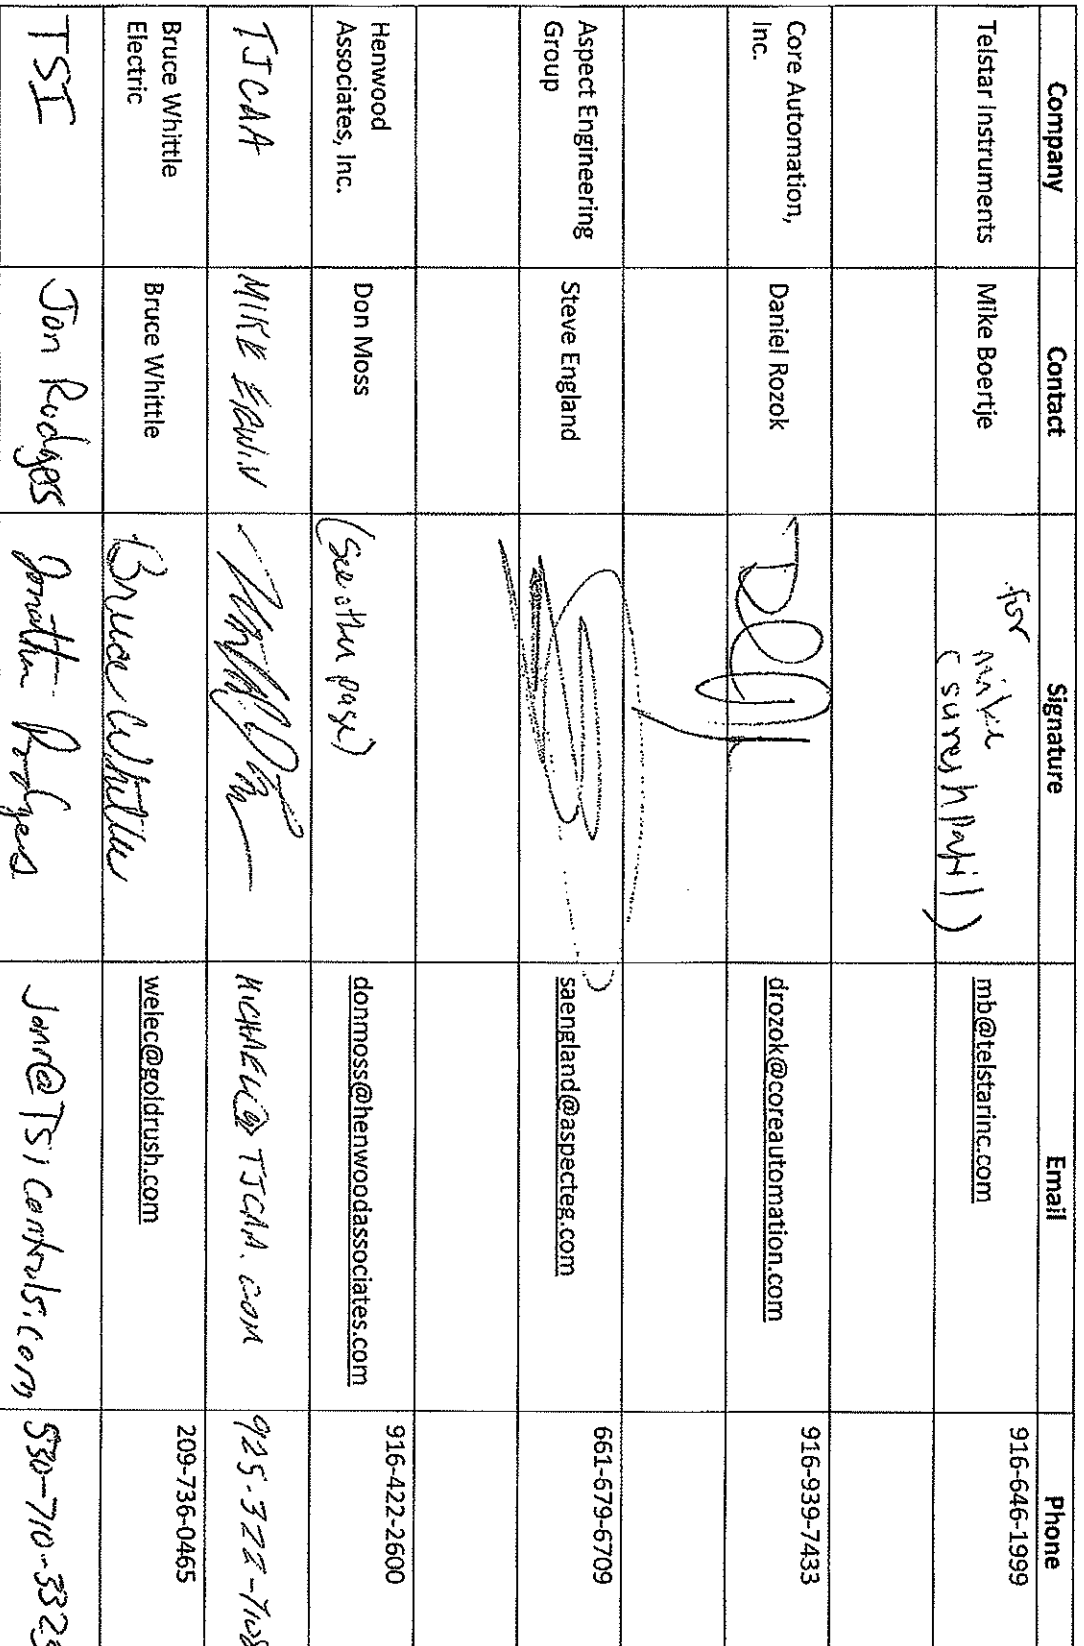 Company Contact Signature Email Phone
Telstar Instruments Mike Boertje for mike (suresh Patil) mb@telstarinc.com 916-646-1999
Core Automation, Inc. Daniel Rozok drozok@coreautomation.com 916-939-7433
Aspect Engineering Group Steve England saengland@aspecteg.com 661-679-6709
Henwood Associates, Inc. Don Moss (see other page) donmoss@henwoodassociates.com 916-422-2600
TJCAA MIKE ERWIN 925-322-
Bruce Whittle Electric Bruce Whittle Bruce Whittle welec@goldrush.com 209-736-0465
TSI Jon Rodgers Jonathan Rodgers JonR@TsiControls.com 530-710-332